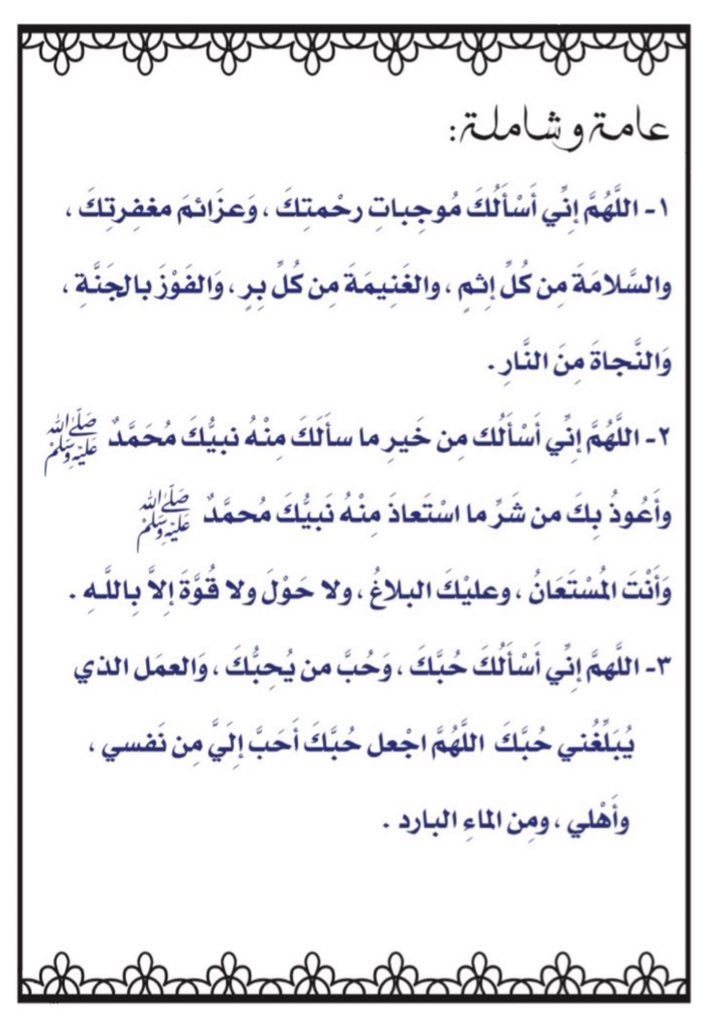 عامة وشاملة:
١- اللَّهُمَّ إنِّي أَسْأَلُكَ مُوجِباتِ رحْمتِكَ ، وَعزَائمَ مغفِرتِكَ ،
والسَّلامَةَ مِن كُلِّ إِثمٍ ، والغَنِيمَةَ مِن كُلِّ بِرٍ ، وَالفَوْزَ بالجَنَّةِ ،
وَالنَّجاةَ مِنَ النَّارِ .
٢- اللَّهُمَّ إنِّي أَسْأَلُك مِن خَيرِ ما سأَلَكَ مِنْهُ نبيُّكَ مُحَمَّدٌ ﷺ
وأَعُوذُ بِكَ من شَرِّ ما اسْتَعاذَ مِنْهُ نَبيُّكَ مُحمَّدٌ ﷺ
وَأَنْتَ المُسْتَعَانُ ، وعليْكَ البلاغُ ، ولا حَوْلَ ولا قُوَّةَ إلاَّ بِاللَّهِ .
٣- اللَّهمَّ إنِّي أَسْأَلُكَ حُبَّكَ ، وَحُبَّ من يُحِبُّكَ ، وَالعمَل الذي
يُبَلِّغُني حُبَّكَ اللَّهُمَّ اجْعل حُبَّكَ أَحَبَّ إلَيَّ مِن نَفسي ،
وأَهْلي ، ومِن الماءِ البارد .